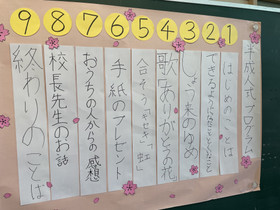 半成人式プログラム
1 はじめのことば
2 できるようになったこと
3 しょう来のゆめ
4 歌「ありがとうの花」
5 合そう「がせき」「虹」
6 手紙のプレゼント
7 おうちの人からの感想
8 校長先生のお話
9 終わりのことば